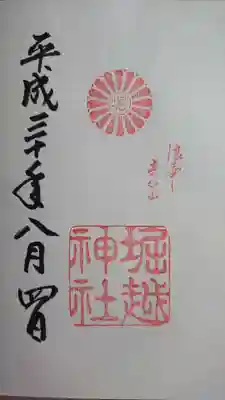 堀越
神社
平成三十年八月四日